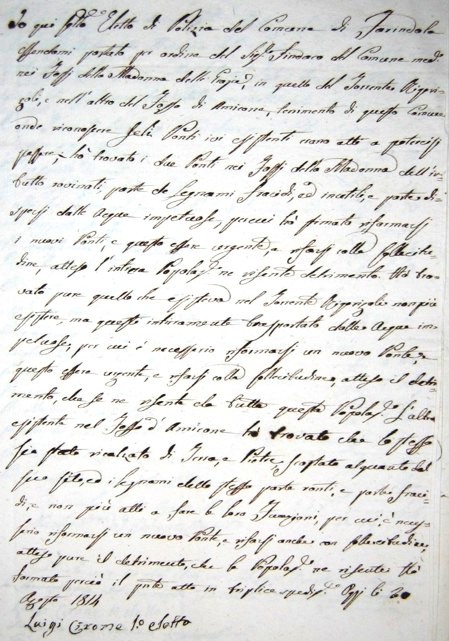 Io qui sotto Eletto di Polizia del Comune di Farindola
essendomi portato per ordine del Sig. Sindaco del Comune med.o
nei Fossi della Madonna delle Grazie, in quello del Torrente
e nell'altro del Fosso di Amirone, tenimento di questo Comune
onde riconoscere se li Ponti ivi esistenti erano atti a potercisi
passare, hò trovato i due Ponti nei Fossi della Madonna dell' in-
tutto rovinati, parte de Legnami fracidi, ed inutili, e parte di-
spersi dalle Acque impetuose, percui hò stimato riformarsi
i nuovi Ponti, e questo essere urgente, e rifarsi colla sollecitu-
dine, atteso l'intiera Popolaz.e ne risente detrimento. Hò tro-
vato pure quello che esisteva nel Torrente non più
esistere, ma questo interamente trasportato dalle Acque im-
petuose; per cui è necessario riformarsi un nuovo Ponte, e
questo essere urgente, e rifarsi colla sollecitudine, atteso il detri-
mento, che se ne risente da tutta questa Popolaz.e L'altro
esistente nel Fosso d'Amirone hò trovato che lo stesso
sia stato ricalcato di Terra, e Pietre, scostato alquanto dal
suo sito, ed i legnami dello stesso parte rotti, e parte fraci-
di, e non più atti a fare le loro Funzioni, per cui è neces-
sario riformarsi un nuovo Ponte, e rifarsi anche con sollecitudine,
atteso pure il detrimento, che la Popolaz.e ne risente. Hò
formato perciò il pnte atto in triplice spediz.e Oggi li 20
Agosto 1814
Luigi Cirone 1.o eletto